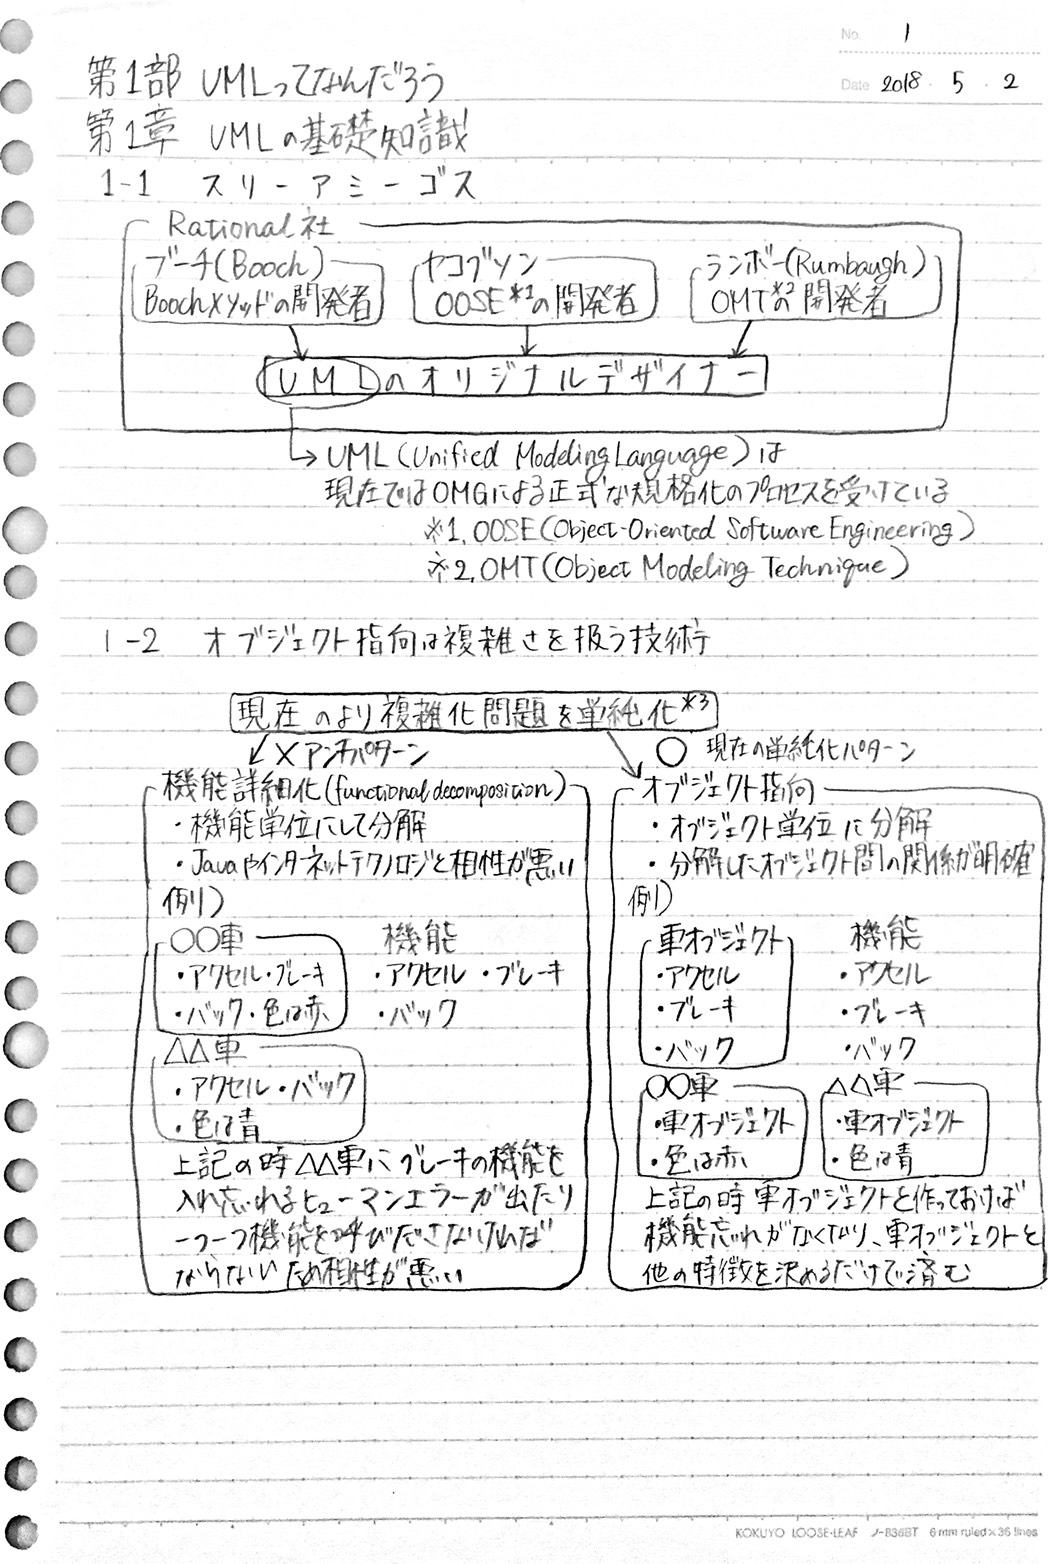 No. 1
Date 2018 ・ 5 ・ 2
第1部 UMLってなんだろう
第1章 UMLの基礎知識
1-1 スリーアミーゴス
Rational社
ブーチ(Booch)
Boochメソッドの開発者
ヤコブソン
OOSE※1の開発者
ランボー(Rumbaugh)
OMT※2の開発者
UMLのオリジナルデザイナー
→UML(Unified Modeling Language)は
現在ではOMGによる正式な規格化のプロセスを受けている
※1,OOSE(Object-Oriented Software Engineering)
※2,OMT(Object Modeling Technique)
1-2 オブジェクト指向は複雑さを扱う技術
現在のより複雑化問題を単純化※3
×アンチパターン
機能詳細化(functional decomposition)
・機能単位にして分解
・Javaやインターネットテクノロジと相性が悪い
例)
○○車
・アクセル・ブレーキ
・バック・色は赤
機能
・アクセル ・ブレーキ
・バック
△△車
・アクセル・バック
・色は青
上記の時△△車にブレーキの機能を
入れ忘れるヒューマンエラーが出たり
一つ一つ機能を呼びださなければ
ならないため相性が悪い
○ 現在の単純化パターン
オブジェクト指向
・オブジェクト単位に分解
・分解したオブジェクト間の関係が明確
例)
車オブジェクト
・アクセル
・ブレーキ
・バック
機能
・アクセル
・ブレーキ
・バック
○○車
・車オブジェクト
・色は赤
△△車
・車オブジェクト
・色は青
上記の時車オブジェクトと作っておけば
機能忘れがなくなり、車オブジェクトと
他の特徴を決めるだけで済む
KOKUYO LOOSE-LEAF ノ-836BT 6mm ruled×36 lines